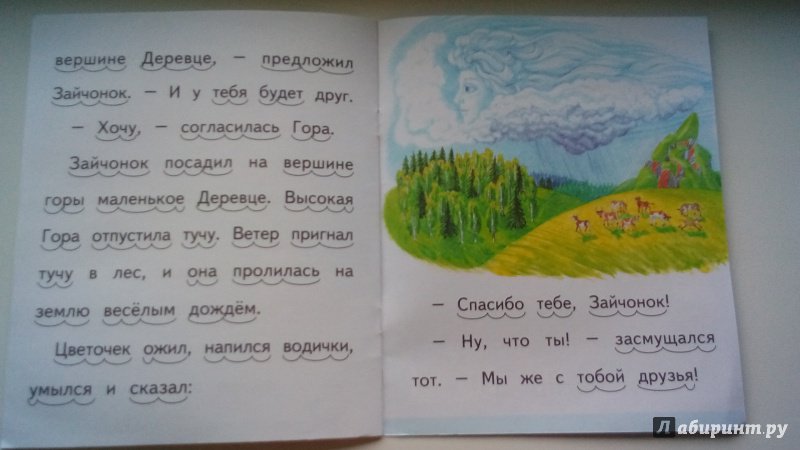 вершине Деревце, — предложил
Зайчонок. — И у тебя будет друг.
— Хочу, — согласилась Гора.
Зайчонок посадил на вершине
горы маленькое Деревце. Высокая
Гора отпустила тучу. Ветер пригнал
тучу в лес, и она пролилась на
землю весёлым дождём.
Цветочек ожил, напился водички,
умылся и сказал:
— Спасибо тебе, Зайчонок!
— Ну, что ты! — засмущался
тот. — Мы же с тобой друзья!
Лабиринт.ру